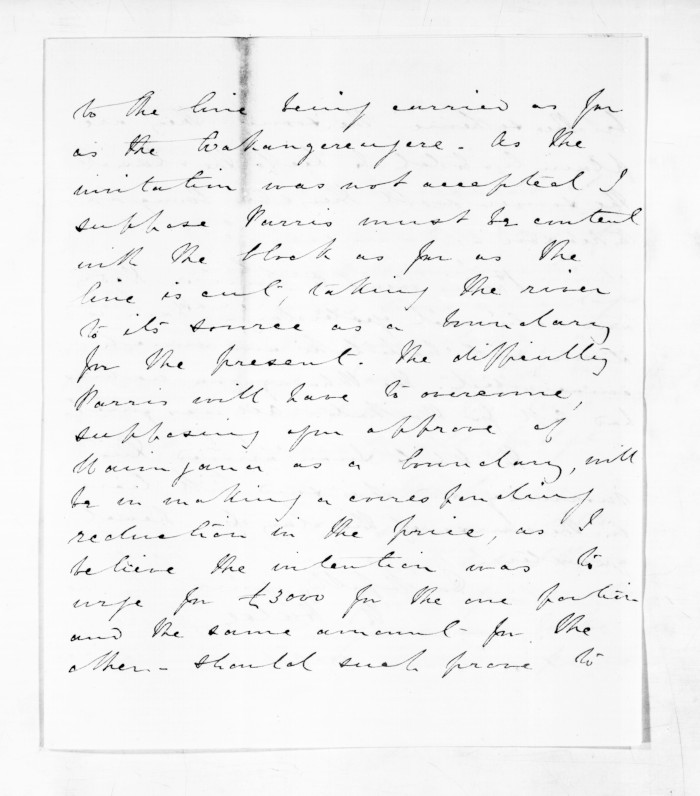 to the line being carried as far
as the Wakangerengere - As the
invitation was not accepted I
suppose Parris must be content
with the block as far as the
line is cut, taking the river
to its source as a boundary
for the present. The difficulty
Parris will have to overcome,
supposing you approve of
as a boundary, will
be in making a corresponding
reduction in the price, as I
believe the intention was to
urge for £3000 for the one portion
and the same amount for the
other - should such prove to